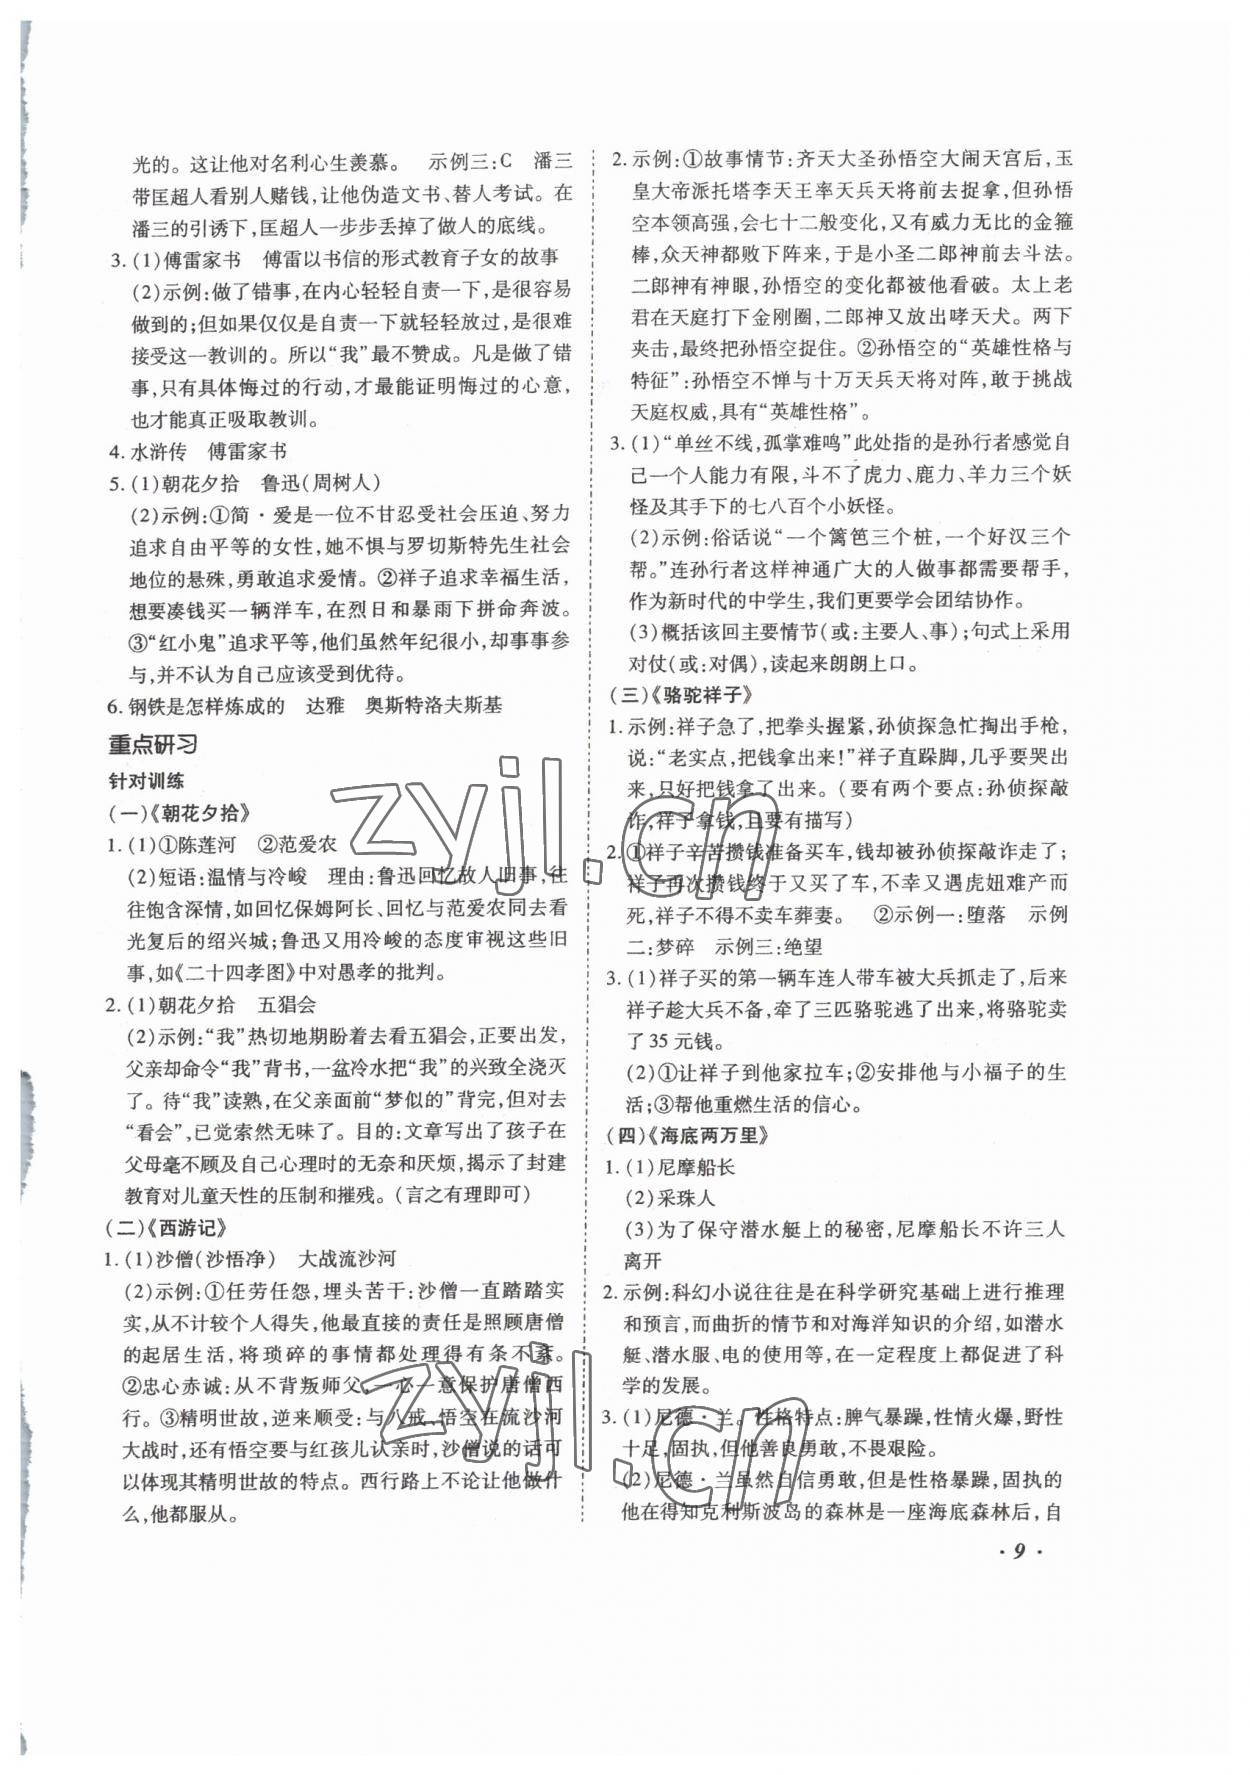 光的。这让他对名利心生羡慕。　示例三:C　潘三
带匡超人看别人赌钱,让他伪造文书、替人考试。在
潘三的引诱下,匡超人一步步丢掉了做人的底线。
3. (1)傅雷家书　傅雷以书信的形式教育子女的故事
(2)示例:做了错事,在内心轻轻自责一下,是很容易
做到的;但如果仅仅是自责一下就轻轻放过,是很难
接受这一教训的。所以“我”最不赞成。凡是做了错
事,只有具体悔过的行动,才最能证明悔过的心意,
也才能真正吸取教训。
4. 水浒传　傅雷家书
5. (1)朝花夕拾　鲁迅(周树人)
(2)示例:①简·爱是一位不甘忍受社会压迫、努力
追求自由平等的女性,她不惧与罗切斯特先生社会
地位的悬殊,勇敢追求爱情。②祥子追求幸福生活,
想要凑钱买一辆洋车,在烈日和暴雨下拼命奔波。
③“红小鬼”追求平等,他们虽然年纪很小,却事事参
与,并不认为自己应该受到优待。
6. 钢铁是怎样炼成的　达雅　奥斯特洛夫斯基
重点研习
针对训练
(一)《朝花夕拾》
1. (1)①陈莲河　②范爱农
(2)短语:温情与冷峻　理由:鲁迅回忆故人旧事,往
往饱含深情,如回忆保姆阿长、回忆与范爱农同去看
光复后的绍兴城;鲁迅又用冷峻的态度审视这些旧
事,如《二十四孝图》中对愚孝的批判。
2. (1)朝花夕拾　五猖会
(2)示例:“我”热切地期盼着去看五猖会,正要出发,
父亲却命令“我”背书,一盆冷水把“我”的兴致全浇灭
了。待“我”读熟,在父亲面前“梦似的”背完,但对去
“看会”,已觉索然无味了。目的:文章写出了孩子在
父母毫不顾及自己心理时的无奈和厌烦,揭示了封建
教育对儿童天性的压制和摧残。(言之有理即可)
(二)《西游记》
1. (1)沙僧(沙悟净)　大战流沙河
(2)示例:①任劳任怨,埋头苦干:沙僧一直踏踏实
实,从不计较个人得失,他最直接的责任是照顾唐僧
的起居生活,将琐碎的事情都处理得有条不紊。
②忠心赤诚:从不背叛师父,一心一意保护唐僧西
行。③精明世故,逆来顺受:与八戒、悟空在流沙河
大战时,还有悟空要与红孩儿认亲时,沙僧说的话可
以体现其精明世故的特点。西行路上不论让他做什
么,他都服从。
2. 示例:①故事情节:齐天大圣孙悟空大闹天宫后,玉
皇大帝派托塔李天王率天兵天将前去捉拿,但孙悟
空本领高强,会七十二般变化,又有威力无比的金箍
棒,众天神都败下阵来,于是小圣二郎神前去斗法。
二郎神有神眼,孙悟空的变化都被他看破。太上老
君在天庭打下金刚圈,二郎神又放出哮天犬。两下
夹击,最终把孙悟空捉住。②孙悟空的“英雄性格与
特征”:孙悟空不惮与十万天兵天将对阵,敢于挑战
天庭权威,具有“英雄性格”。
3. (1)“单丝不线,孤掌难鸣”此处指的是孙行者感觉自
己一个人能力有限,斗不了虎力、鹿力、羊力三个妖
怪及其手下的七八百个小妖怪。
(2)示例:俗话说“一个篱笆三个桩,一个好汉三个
帮。”连孙行者这样神通广大的人做事都需要帮手,
作为新时代的中学生,我们更要学会团结协作。
(3)概括该回主要情节(或:主要人、事);句式上采用
对仗(或:对偶),读起来朗朗上口。
(三)《骆驼祥子》
1. 示例:祥子急了,把拳头握紧,孙侦探急忙掏出手枪,
说:“老实点,把钱拿出来!”祥子直跺脚,几乎要哭出
来,只好把钱拿了出来。(要有两个要点:孙侦探敲
诈,祥子拿钱,且要有描写)
2. ①祥子辛苦攒钱准备买车,钱却被孙侦探敲诈走了;
祥子再次攒钱终于又买了车,不幸又遇虎妞难产而
死,祥子不得不卖车葬妻。　②示例一:堕落　示例
二:梦碎　示例三:绝望
3. (1)祥子买的第一辆车连人带车被大兵抓走了,后来
祥子趁大兵不备,牵了三匹骆驼逃了出来,将骆驼卖
了 35 元钱。
(2)①让祥子到他家拉车;②安排他与小福子的生
活;③帮他重燃生活的信心。
(四)《海底两万里》
1. (1)尼摩船长
(2)采珠人
(3)为了保守潜水艇上的秘密,尼摩船长不许三人
离开
2. 示例:科幻小说往往是在科学研究基础上进行推理
和预言,而曲折的情节和对海洋知识的介绍,如潜水
艇、潜水服、电的使用等,在一定程度上都促进了科
学的发展。
3. (1)尼德·兰。性格特点:脾气暴躁,性情火爆,野性
十足,固执,但他善良勇敢,不畏艰险。
(2)尼德·兰虽然自信勇敢,但是性格暴躁,固执的
他在得知克利斯波岛的森林是一座海底森林后,自
· 9 ·
zyjl.cn
zyjl.cn